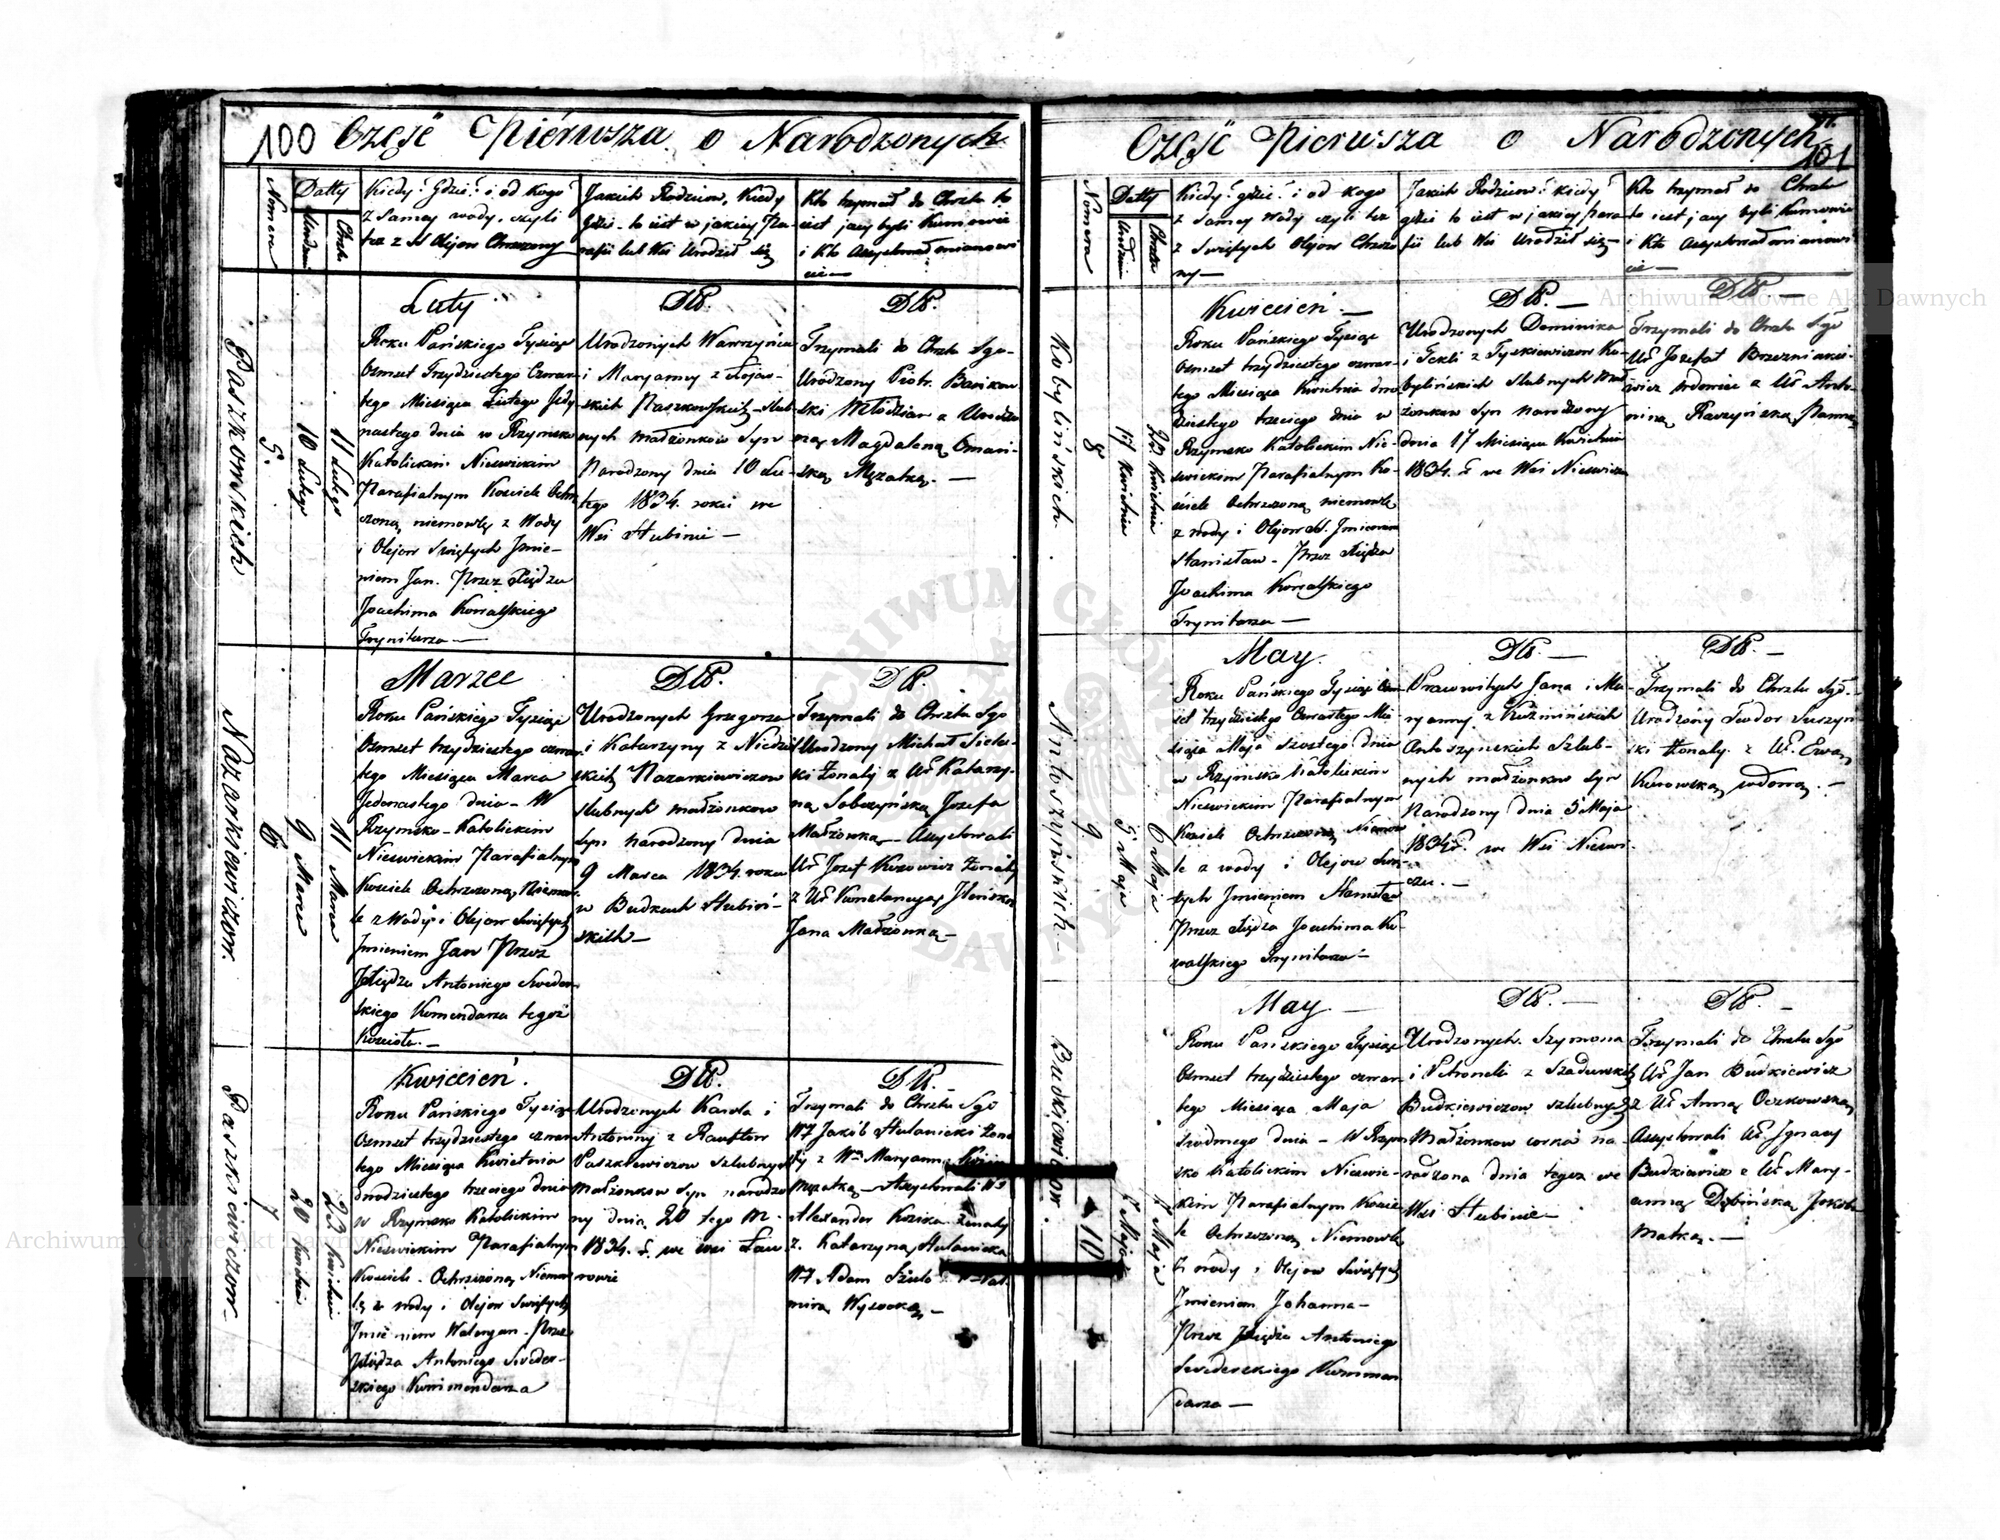 100 Część Pierwsza o Narodzonych
Nomera
Datty
Urodzen
Chrztu
Kiedy? Gdzie? i od Kogo
z samey wody, czyli
też z SS Olejow Chrzczony
Jakich Rodziców, Kiedy
gdzie to iest w jakiey Pa-
rafii lub Wsi Urodził się
Kto trzymał do Chrztu to
iest jacy byli Kumowie
i Kto Assystował mianowi
cie—
Paszkowskich
5.
10 Lutego
11 Lutego
Luty
Roku Pańskiego Tysiąc
Osmset Trzydziestego Czwar
tego Miesiąca Lutego Jedy
nastego dnia w Rzymsko
Katolickim Nieświckim
Parafialnym Kościele Ochrz
czono niemowlę z Wody
i Olejow Świętych Jmie-
niem Jan. Przez Xiędza
Joachima Kowalskiego
Trynitarza—
Urodzonych Wawrzyńca
i Maryanny z
skich Paszkowskich Slub-
nych małżonkow Syn
Narodzony dnia 10 Lu-
tego 1834. roku we
Wsi Stubinie—
Trzymali do Chrztu Sgo-
Urodzony Piotr
ski Młodzian z Urodzo
ną Magdaleną
ską Mężatką.—
Nazarkiewiczow.
6
9 Marca
11 Marca
Marzec
Roku Pańskiego Tysiąc
Osmset trzydziestego czwar
tego Miesiąca Marca
Jedenastego dnia- W
Rzymsko-Katolickim
Nieświckim Parafialnym
Kościele Ochrzczono Niemow
le z Wody i Olejow Świętych
Jmieniem Jan Przez
Xiędza Antoniego Swider
skiego Komendarza tegoż
Kościoła.—
Urodzonych Grzegorza
i Katarzyny z
skich Nazarkiewiczow
slubnych małżonkow
syn narodzony dnia
9 Marca 1834. roku
w Budkach Stubiń-
skich—
Trzymali do Chrztu Sgo
Urodzony Michał
ski Żonaty z Ur Katarzy-
ną Sobczyńską Jozefa
Małżonką—Assystowali
Ur Jozef Kurowicz Żonaty
z Ur Konstancyą
Jana Małżonką—
Paszkiewiczow—
7
20 Kwietnia
23 Kwietnia
Kwiecień.
Roku Pańskiego Tysiąc
Osmset trzydziestego czwar
tego Miesiąca Kwietnia
dwodziestego trzeciego dnia
w Rzymsko Katolickim
Nieświckim Parafialnym
Kościele. Ochrzczono Niemow
lę z wody i Olejow Świętych
Jmieniem Waleryan. Przez
Xiędza Antoniego Swider-
skiego Kommendarza
Urodzonych Karola i
Antoniny z
Paszkiewiczow szlubnych
małżonkow Syn narodzo
ny dnia 20 tego m.
1834. r. we wsi Ław
rowie
Trzymali do Chrztu Sgo
Jakób Stulanicki Żona
ty z Maryanną
Mężatką—Assystowali
Alexander Kozika Żonaty
z. Katarzyną Stulanicką
Adam
mirą Wysocką—
Część Pierwsza o Narodzonych
101
Nomera
Datty
Urodzen
Chrztu
Kiedy? gdzie? i od kogo
z samey wody czyli też
z Świętych Olejow Chrzczo
ny—
Jakich Rodziców? kiedy?
gdzie to iest w jakiey para
fii lub Wsi Urodził się—
Kto trzymał do Chrztu
to iest jacy byli Kumowie
i Kto Assystował mianowi
cie—
Kobylińskich.
8
17 Kwietnia
23 Kwietnia
Kwiecień—
Roku Pańskiego Tysiąc
Osmset trzydziestego czwar
tego Miesiąca Kwietnia dwu
dziestego trzeciego dnia w
Rzymsko Katolickim Nie-
świckim Parafialnym Ko-
ściele Ochrzczono niemowlę
z wody i Olejow SS. Jmieniem
Stanisław- Przez Xiędza
Joachima Kowalskiego
Trynitarza—
Urodzonych Dominika
i Tekli z Tyszkiewiczow Ko-
bylińskich slubnych mał
żonkow Syn narodzony
dnia 17 Miesiąca Kwietnia
1834. r. we Wsi Nieświczu
Trzymali do Chrztu Sgo
Ur Jozefat
wicz wdowiec z Ur Anto-
niną Raczyńską Panną
Antoszyńskich—
9
5 Maja
6 Maja
May.
Roku Pańskiego Tysiąc Osm
set trzydziestego Czwartego Mie
siąca Maja szostego dnia
w Rzymsko Katolickim
Nieświckim Parafialnym
Kościele Ochrzczono Niemow
le z wody i Olejow Świę-
tych Jmieniem Stanisław
Przez Xiędza Joachima Ko-
walskiego Trynitarza—
Prawowitych Jana i Ma-
ryanny z Kuźmińskich
Antoszyńskich Szlub-
nych małżonkow Syn
Narodzony dnia 5 Maja
1834 r. we Wsi Nieświ-
czu.—
Trzymali do Chrztu Sgo.
Urodzony Teodor Suszyn
ski Żonaty. z Ur. Ewą
Kurowską wdową.—
Budkiewiczow.
10
7 Maja
7 Maja
May.—
Roku Pańskiego Tysiąc
Osmset trzydziestego czwar
tego Miesiąca Maja
siodmego dnia- W Rzym
sko Katolickim Nieświc-
kim Parafialnym Koście
le Ochrzczono Niemowle
z wody i Olejow Świętych
Jmieniem Johanna—
Przez Xiędza Antoniego
Swiderskiego Kommen
darza—
Urodzonych. Szymona
i Petroneli z Szadurskich
Budkiewiczow szlubnych
Małżonkow corka na-
rodzona dnia tegoż we
Wsi Stubinie—
Trzymali do Chrztu Sgo
Ur Jan Budkiewicz
z Ur Anną Oczkowską
Assystowali Ur. Ignacy
Budkiewicz z Ur Mary-
anną Dębińską
Matką.—
Archiwum Główne Akt Dawnych
Archiwum Główne Akt Dawnych